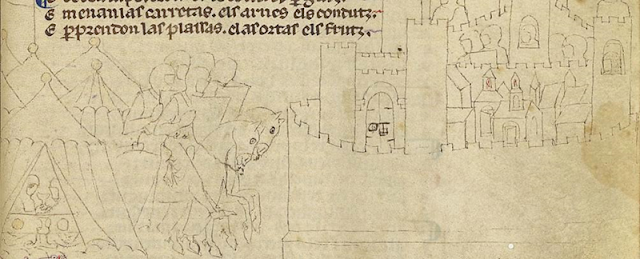 E menan las carretas. els arnes els condutz.
E ꝑprendon las plassas. elas ortas els frutz.